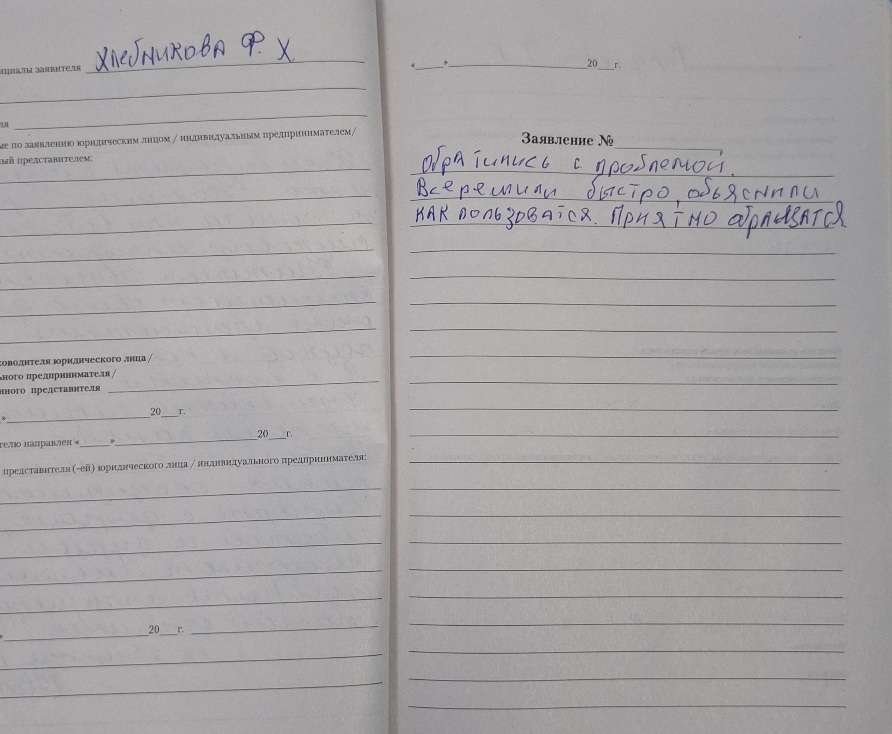 ициалы заявителя Хлебникова Ф. Х
ля
ые по заявлению юридическим лицом / индивидуальным предпринимателем/
ный представителем:
ководителя юридического лица /
ьного предпринимателя /
нного представителя
» 20 г.
телю направлен « » 20 г.
представителя (-ей) юридического лица / индивидуального предпринимателя:
» 20 г.
« » 20 г.
Заявление №
обратились с проблемой.
Все решили быстро, объяснили
как пользоватся. Приятно обращатся